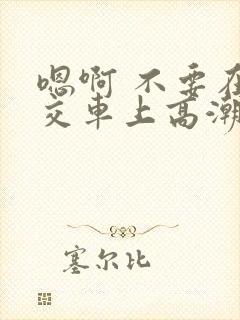 嗯啊 不要在
交车上高潮
塞尔比